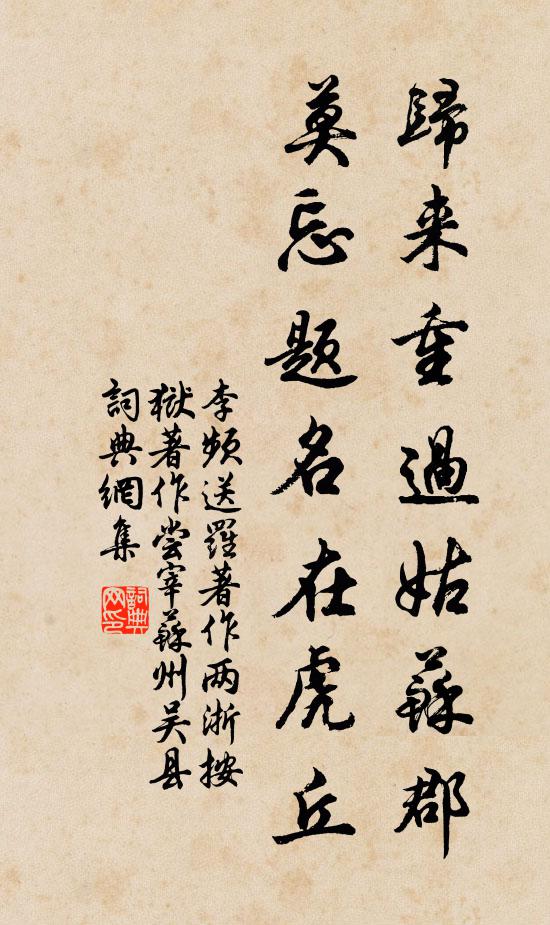 歸来重過姑蘇郡
莫忘題名在虎丘
李頻送羅著作两浙按
獄著作嘗宰蘇州吴县
詞典網集
詞典网印